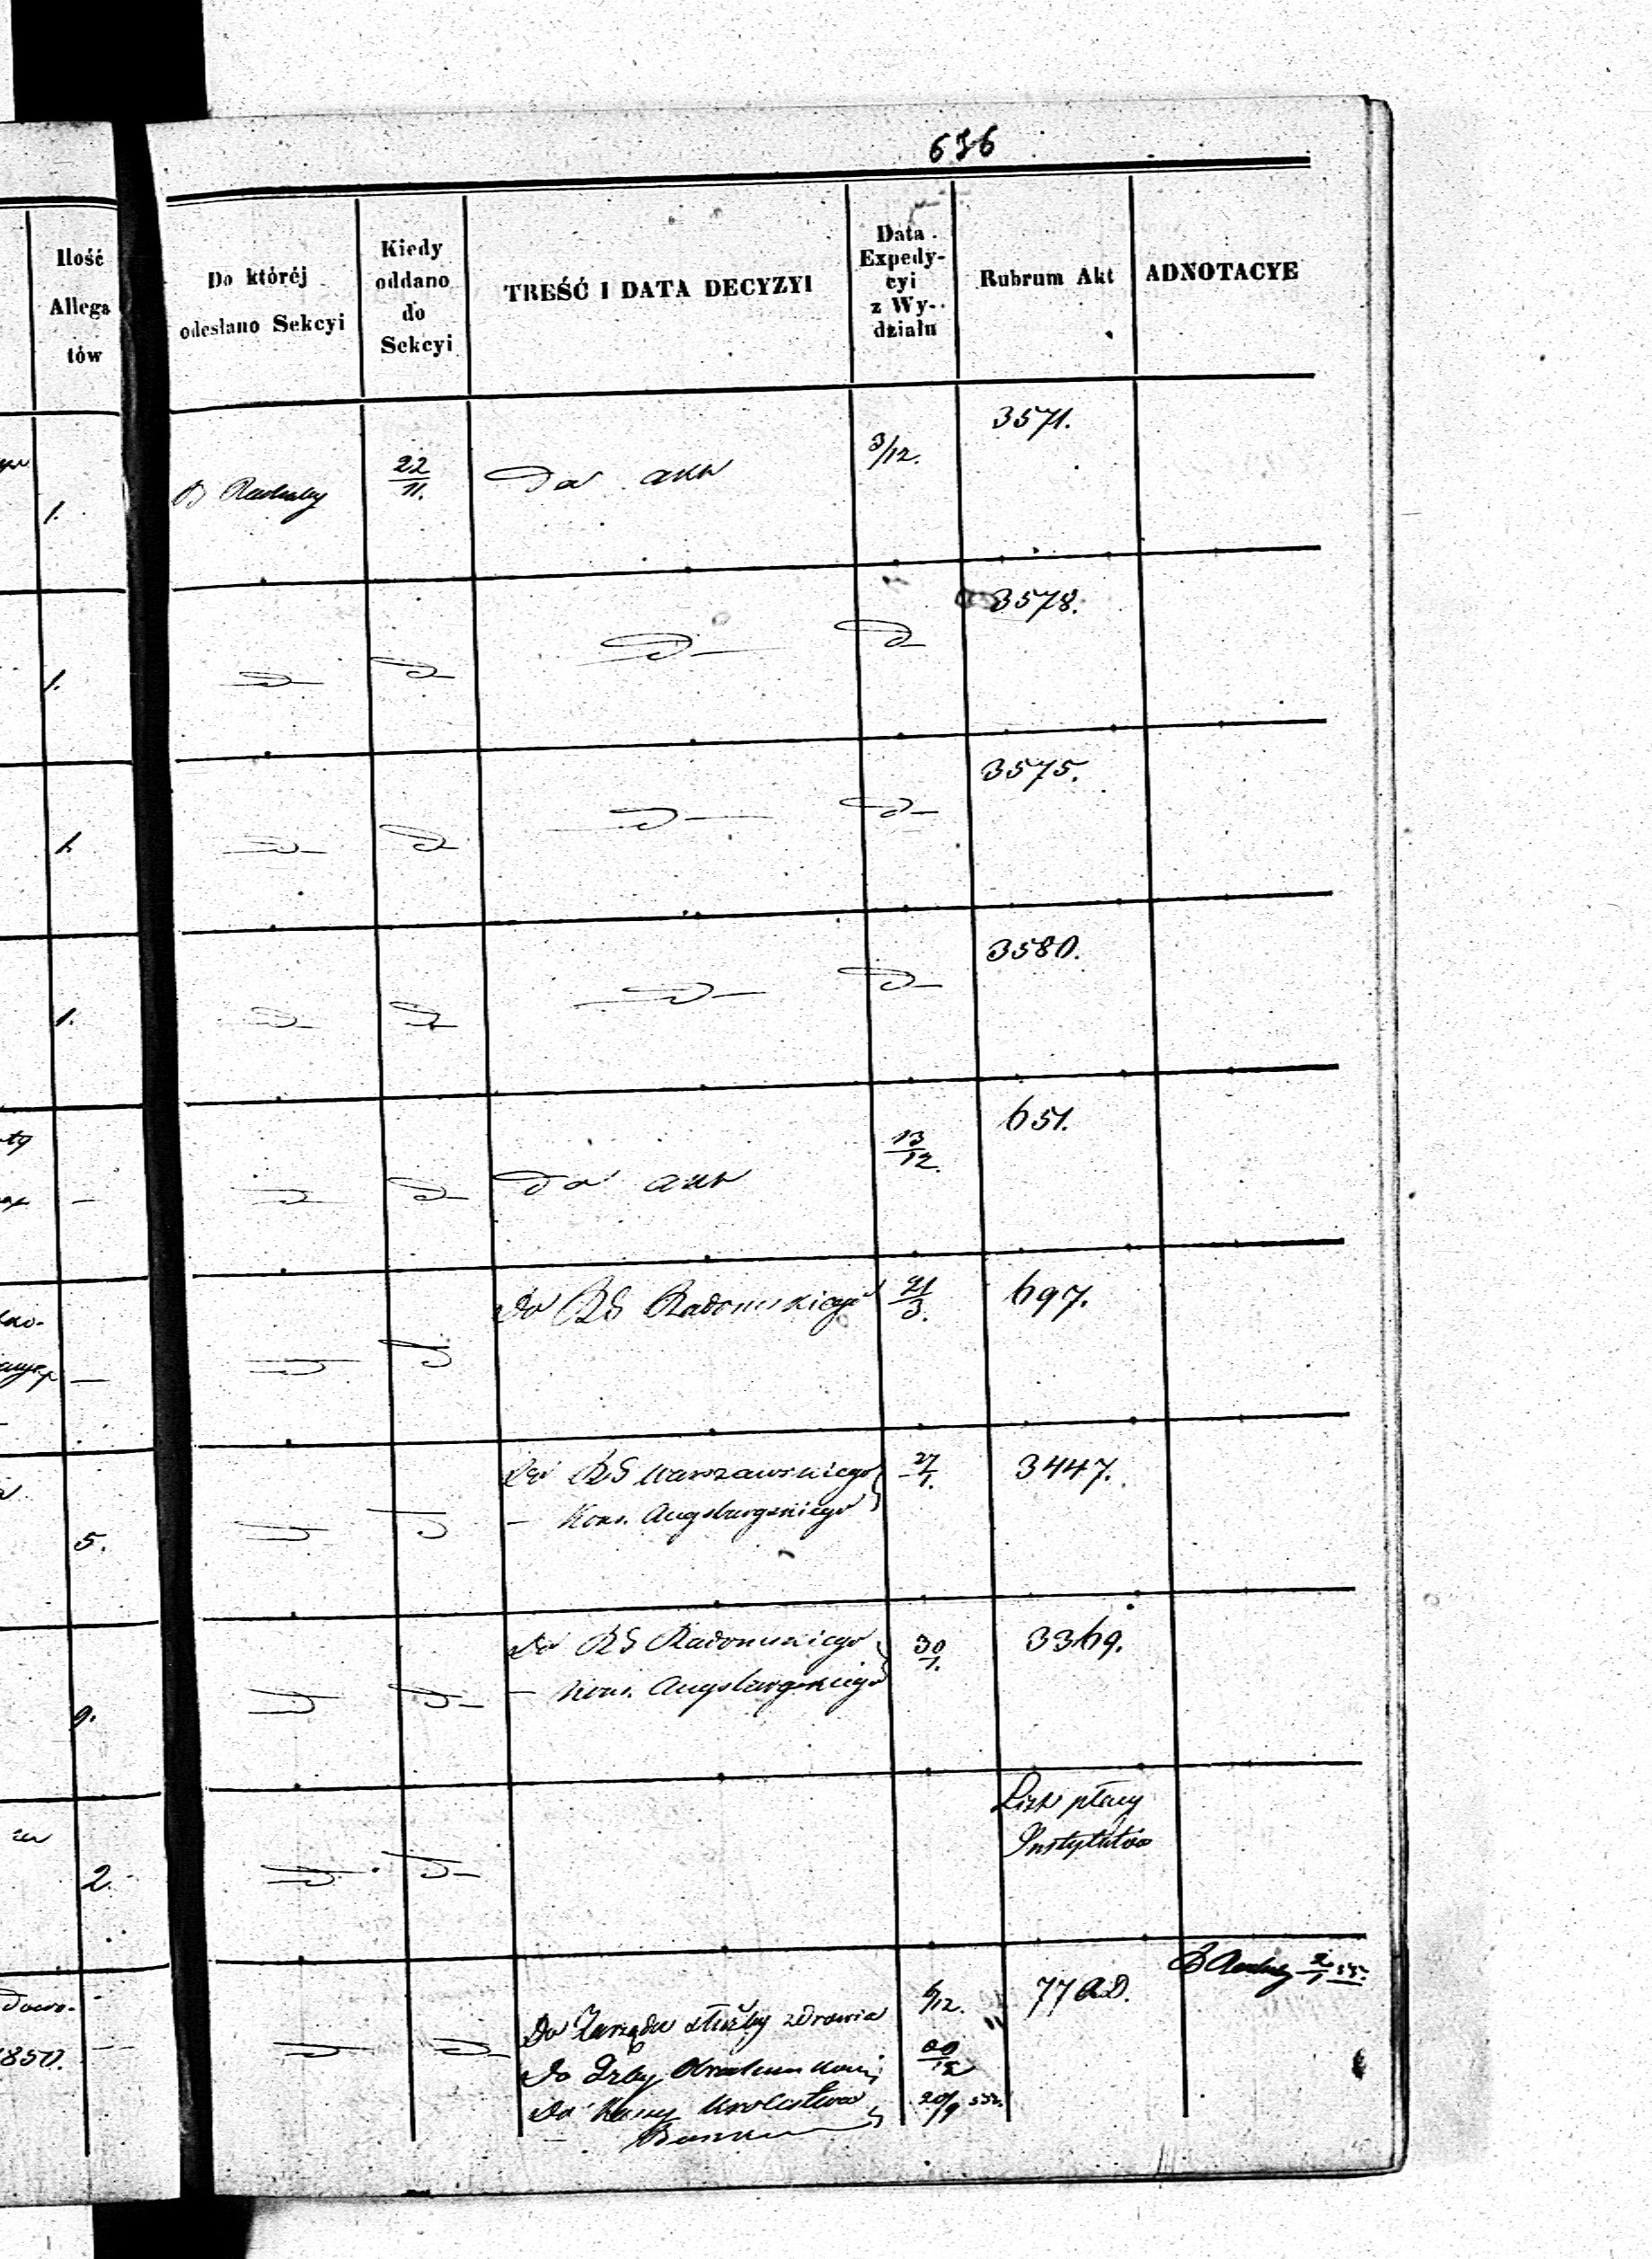 636
Ilość
Allega
tów
Do któréj
odesłano Sekcyi
Kiedy
oddano
do
Sekcyi
TREŚĆ I DATA DECYZYI
Data
Expedy-
cyi
z Wy-
działu
Rubrum Akt
ADNOTACYE
1.
22/11.
Do akt
3/12.
3571.
1.
3578.
1.
3575.
1.
3580.
—
Do akt
13/12.
651.
—
Do RG Radomskiego
21/3.
697.
5.
Do RG Warszawskiego
— Kons. Augsburgskiego
27/1.
3447.
9.
Do RG Radomskiego
— Kons. Augsburgskiego
30/1.
3369.
2.
płacy
Instytutów
1850.
Do Zarządu służby zdrowia
6/12.
77 A.D.
Do Izby Obrachunkowej
Do Kassy Królestwa
20/9